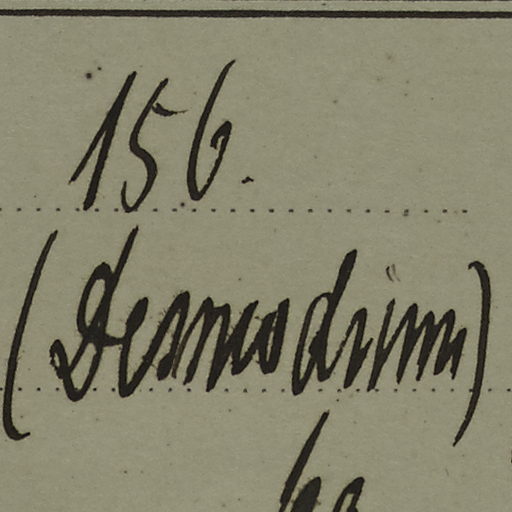 156.
(Desmodium)